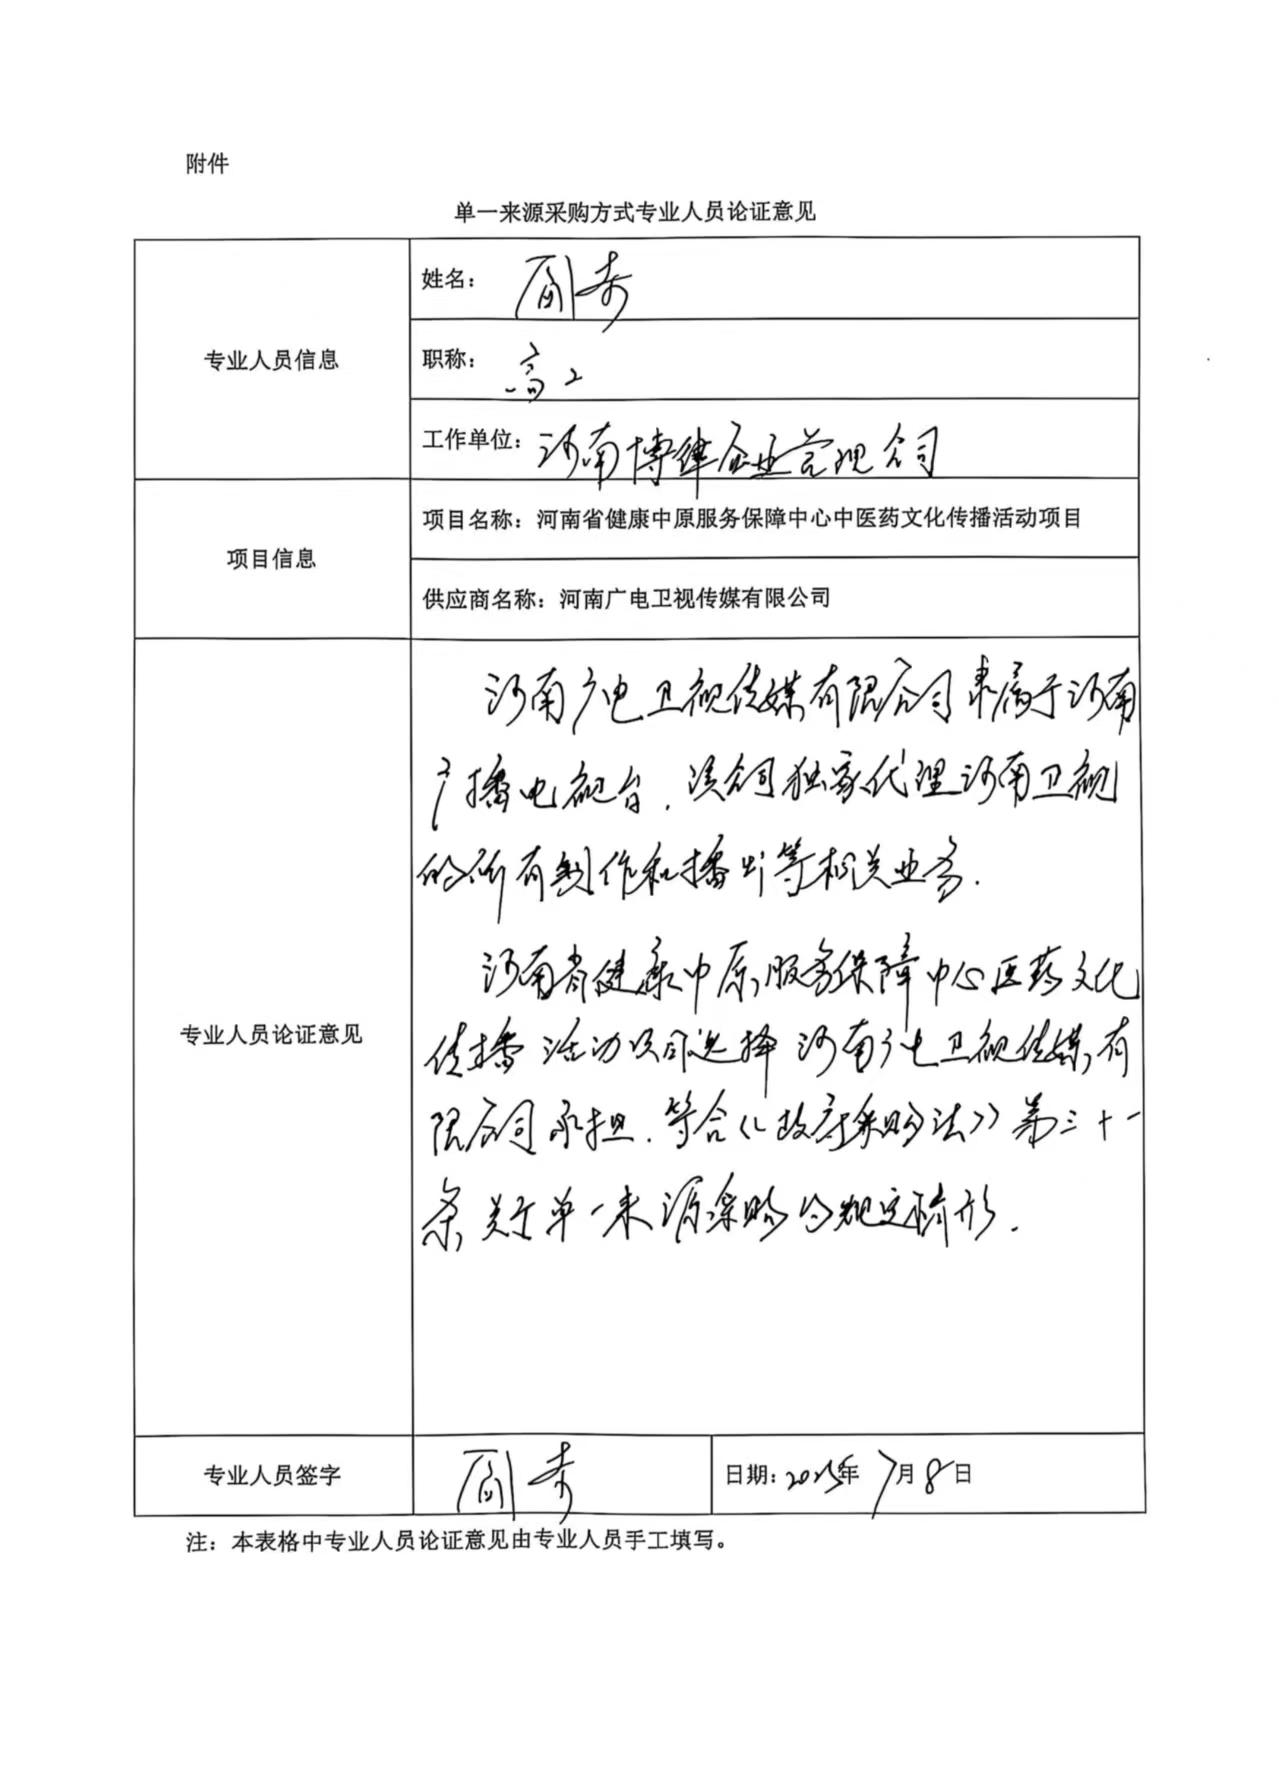 附件
单一来源采购方式专业人员论证意见
专业人员信息
姓名：
职称：高工
工作单位：河南博律企业管理公司
项目信息
项目名称：河南省健康中原服务保障中心中医药文化传播活动项目
供应商名称：河南广电卫视传媒有限公司
专业人员论证意见
河南广电卫视传媒有限公司隶属于河南
广播电视台，该公司独家代理河南卫视
的所有制作和播出等相关业务.
河南省健康中原服务保障中心医药文化
传播活动项目选择河南广电卫视传媒有
限公司承担.符合《政府采购法》第三十一
条关于单一来源采购的规定情形.
专业人员签字
日期：2025年7月8日
注：本表格中专业人员论证意见由专业人员手工填写。